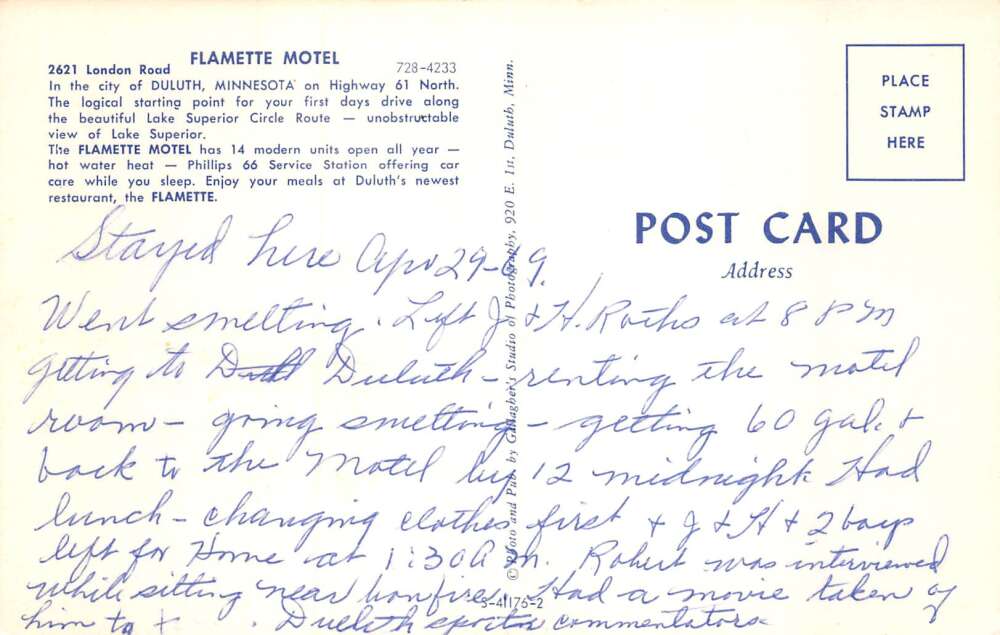 FLAMETTE MOTEL
2621 London Road 728-4233
In the city of DULUTH, MINNESOTA on Highway 61 North.
The logical starting point for your first days drive along
the beautiful Lake Superior Circle Route — unobstructable
view of Lake Superior.
The FLAMETTE MOTEL has 14 modern units open all year —
hot water heat — Phillips 66 Service Station offering car
care while you sleep. Enjoy your meals at Duluth's newest
restaurant, the FLAMETTE.
© Photo and Pub. by Gallagher's Studio of Photography, 920 E. 1st, Duluth, Minn.
PLACE
STAMP
HERE
POST CARD
Address
Stayed here Apr 29-69.
Went smelting. Left J & H. Roths at 8 PM
getting to Duluth – renting the motel
room – going smelting – getting 60 gal. &
back to the Motel by 12 midnight Had
lunch – changing clothes first & J & H & 2 boys
left for Home at 1:30 A M. Robert was interviewed
while sitting near bonfire. Had a movie taken of
him to . Duluth sports commentators
S-41176-2